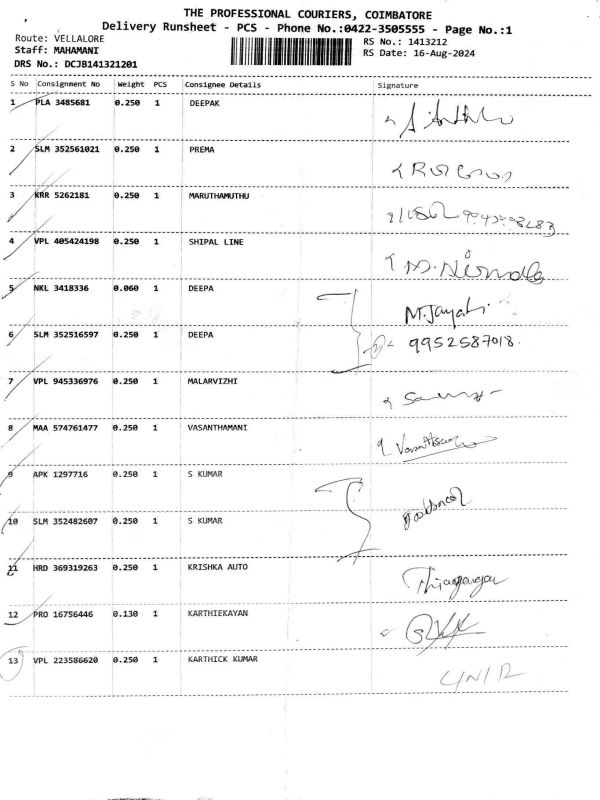 THE PROFESSIONAL COURIERS, COIMBATORE
Delivery Runsheet - PCS - Phone No.:0422-3505555 - Page No.:1
Route: VELLALORE RS No.: 1413212
Staff: MAHAMANI RS Date: 16-Aug-2024
DRS No.: DCJB141321201
S No Consignment No Weight PCS Consignee Details Signature
1 PLA 3485681 0.250 1 DEEPAK
2 SLM 352561021 0.250 1 PREMA
3 KRR 5262181 0.250 1 MARUTHAMUTHU
4 VPL 405424198 0.250 1 SHIPAL LINE M. Nirmala
5 NKL 3418336 0.060 1 DEEPA M. Jayathi
6 SLM 352516597 0.250 1 DEEPA 9952587018
7 VPL 945336976 0.250 1 MALARVIZHI
8 MAA 574761477 0.250 1 VASANTHAMANI
9 APK 1297716 0.250 1 S KUMAR
10 SLM 352482607 0.250 1 S KUMAR
11 HRD 369319263 0.250 1 KRISHKA AUTO
12 PRO 16756446 0.130 1 KARTHIEKAYAN
13 VPL 223586620 0.250 1 KARTHICK KUMAR